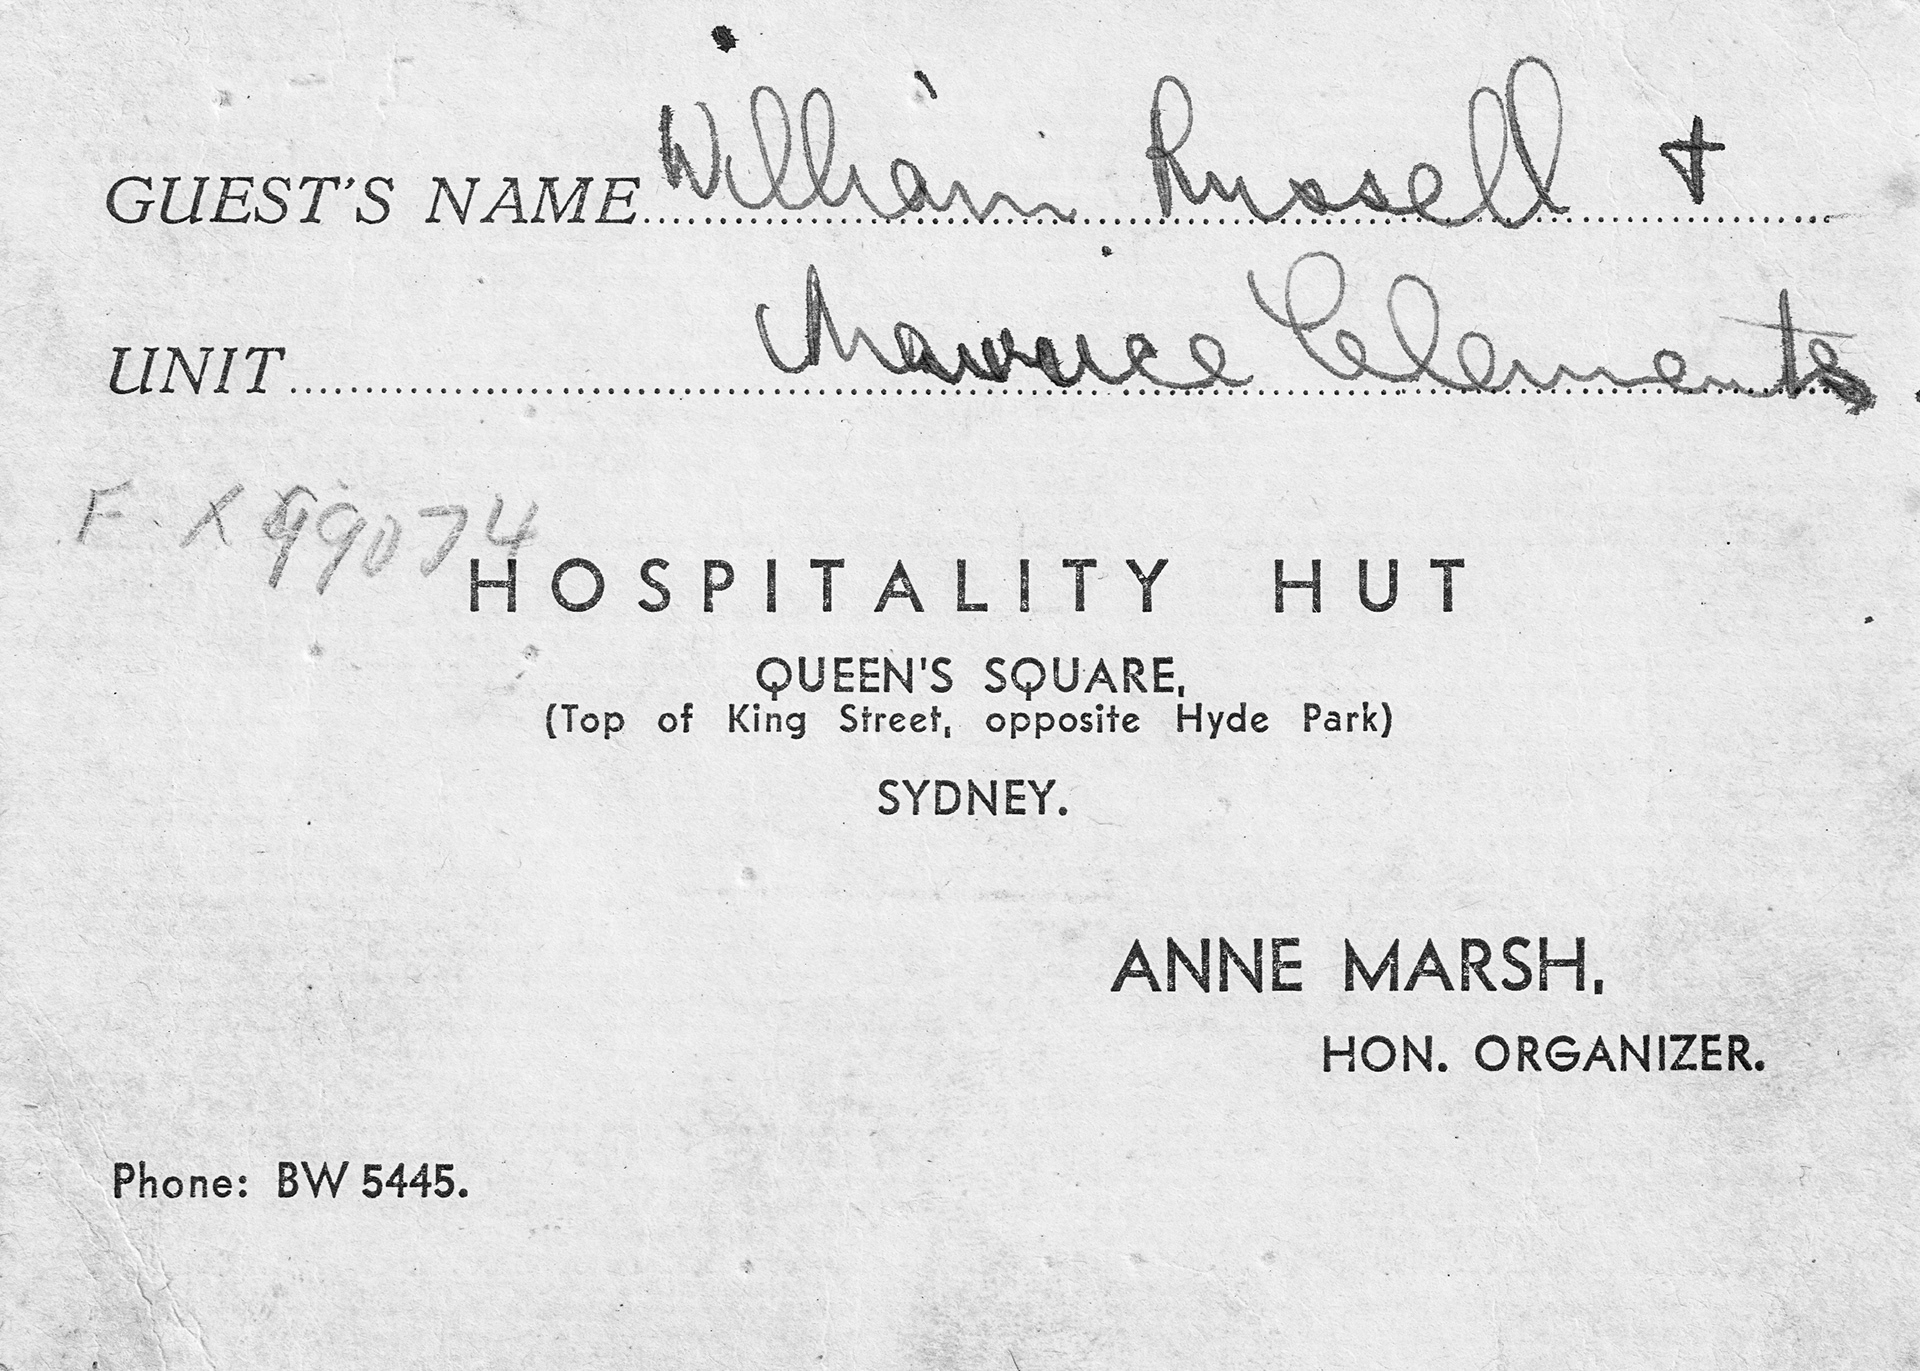 GUEST'S NAME William Russell +
UNIT Maurice Clements.
F X 99074
HOSPITALITY HUT
QUEEN'S SQUARE,
(Top of King Street, opposite Hyde Park)
SYDNEY.
ANNE MARSH,
HON. ORGANIZER.
Phone: BW 5445.